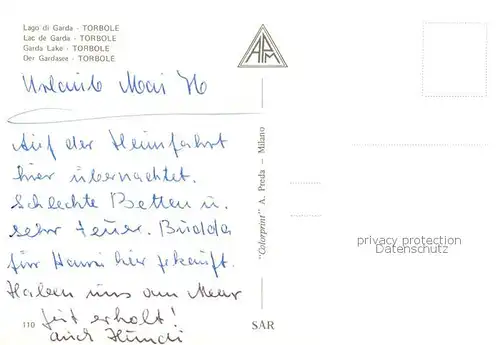 Lago di Garda - TORBOLE
Lac de Garda - TORBOLE
Garda Lake - TORBOLE
Der Gardasee - TORBOLE
APM
Urlaub Mai 76
Auf der Heimfahrt
hier übernachtet.
Schlechte Betten u.
sehr teuer. Budda
für Hansi hier gekauft.
Haben uns am Meer
gut erholt!
auch Hundi
"Colorprint" A. Preda — Milano
privacy protection
Datenschutz
110
SAR